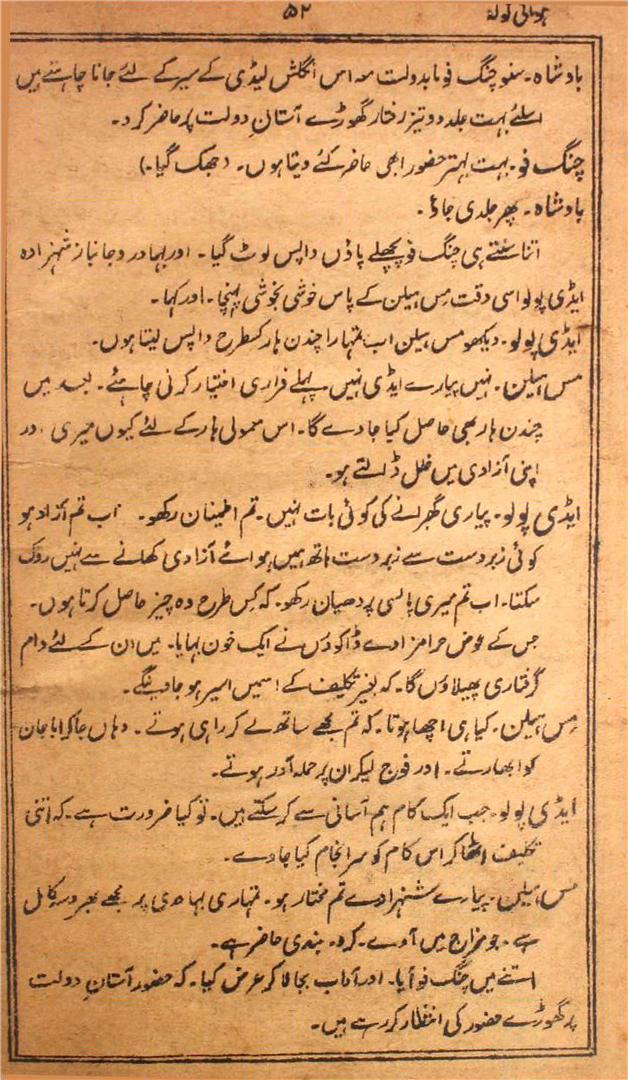 ہوائی گولہ ۵۲
بادشاہ۔ سنو چنگ فو مابدولت معہ اس انگلش لیڈی کے سیر کے لئے جانا چاہتے ہیں
اسلئے بہت جلد دو تیز رفتار گھوڑے آستانِ دولت پر حاضر کرد۔
چنگ فو۔ بہت بہتر حضور ابھی حاضر کئے دیتا ہوں۔ (جھک گیا۔)
بادشاہ۔ پھر جلدی جاؤ۔
اتنا سنتے ہی چنگ فو پچھلے پاؤں واپس لوٹ گیا۔ اور بہادر و جانباز شہزادہ
ایڈی پولو اسی وقت مس ہیلن کے پاس خوشی بخوشی پہنچا۔ اور کہا۔
ایڈی پولو۔ دیکھو مس ہیلن اب تمہارا چندن ہار کسطرح واپس لیتا ہوں۔
مس ہیلن۔ نہیں پیارے ایڈی نہیں پہلے فراری اختیار کرنی چاہئے۔ بعد میں
چندن ہار بھی حاصل کیا جاوے گا۔ اس معمولی ہار کے لئے کیوں میری اور
اپنی آزادی میں خلل ڈالتے ہو۔
ایڈی پولو۔ پیاری گھبرانے کی کوئی بات نہیں۔ تم اطمینان رکھو۔ اب تم آزاد ہو
کوئی زبردست سے زبردست ہاتھ ہمیں ہوائے آزادی کھانے سے نہیں روک
سکتا۔ اب تم میری پالسی پر دھیان رکھو۔ کہ کس طرح وہ چیز حاصل کرتا ہوں۔
جس کے عوض حرامزادے ڈاکوؤں نے ایک خون بہایا۔ میں ان کے لئے دام
گرفتاری پھیلاؤں گا۔ کہ بغیر تکلیف کے اسمیں اسیر ہو جاویں گے۔
مس ہیلن۔ کیا ہی اچھا ہوتا۔ کہ تم مجھے ساتھ لے کر راہی ہوتے۔ وہاں جاکر ابا جان
کو ابھارتے۔ اور فوج لیکر ان پر حملہ آور ہوتے۔
ایڈی پولو۔ جب ایک کام ہم آسانی سے کر سکتے ہیں۔ تو کیا ضرورت ہے۔ کہ اتنی
تکلیف اٹھا کر اس کام کو سرانجام کیا جاوے۔
مس ہیلن۔ پیارے شہزادے تم مختار ہو۔ تمہاری بہادری پر مجھے بھروسہ کامل
ہے۔ جو مزاج میں آوے۔ کرو۔ بندی حاضر ہے۔
اتنے میں چنگ فو آیا۔ اور آداب بجا لا کر عرض کیا۔ کہ حضور آستانِ دولت
پر گھوڑے حضور کی انتظار کر رہے ہیں۔